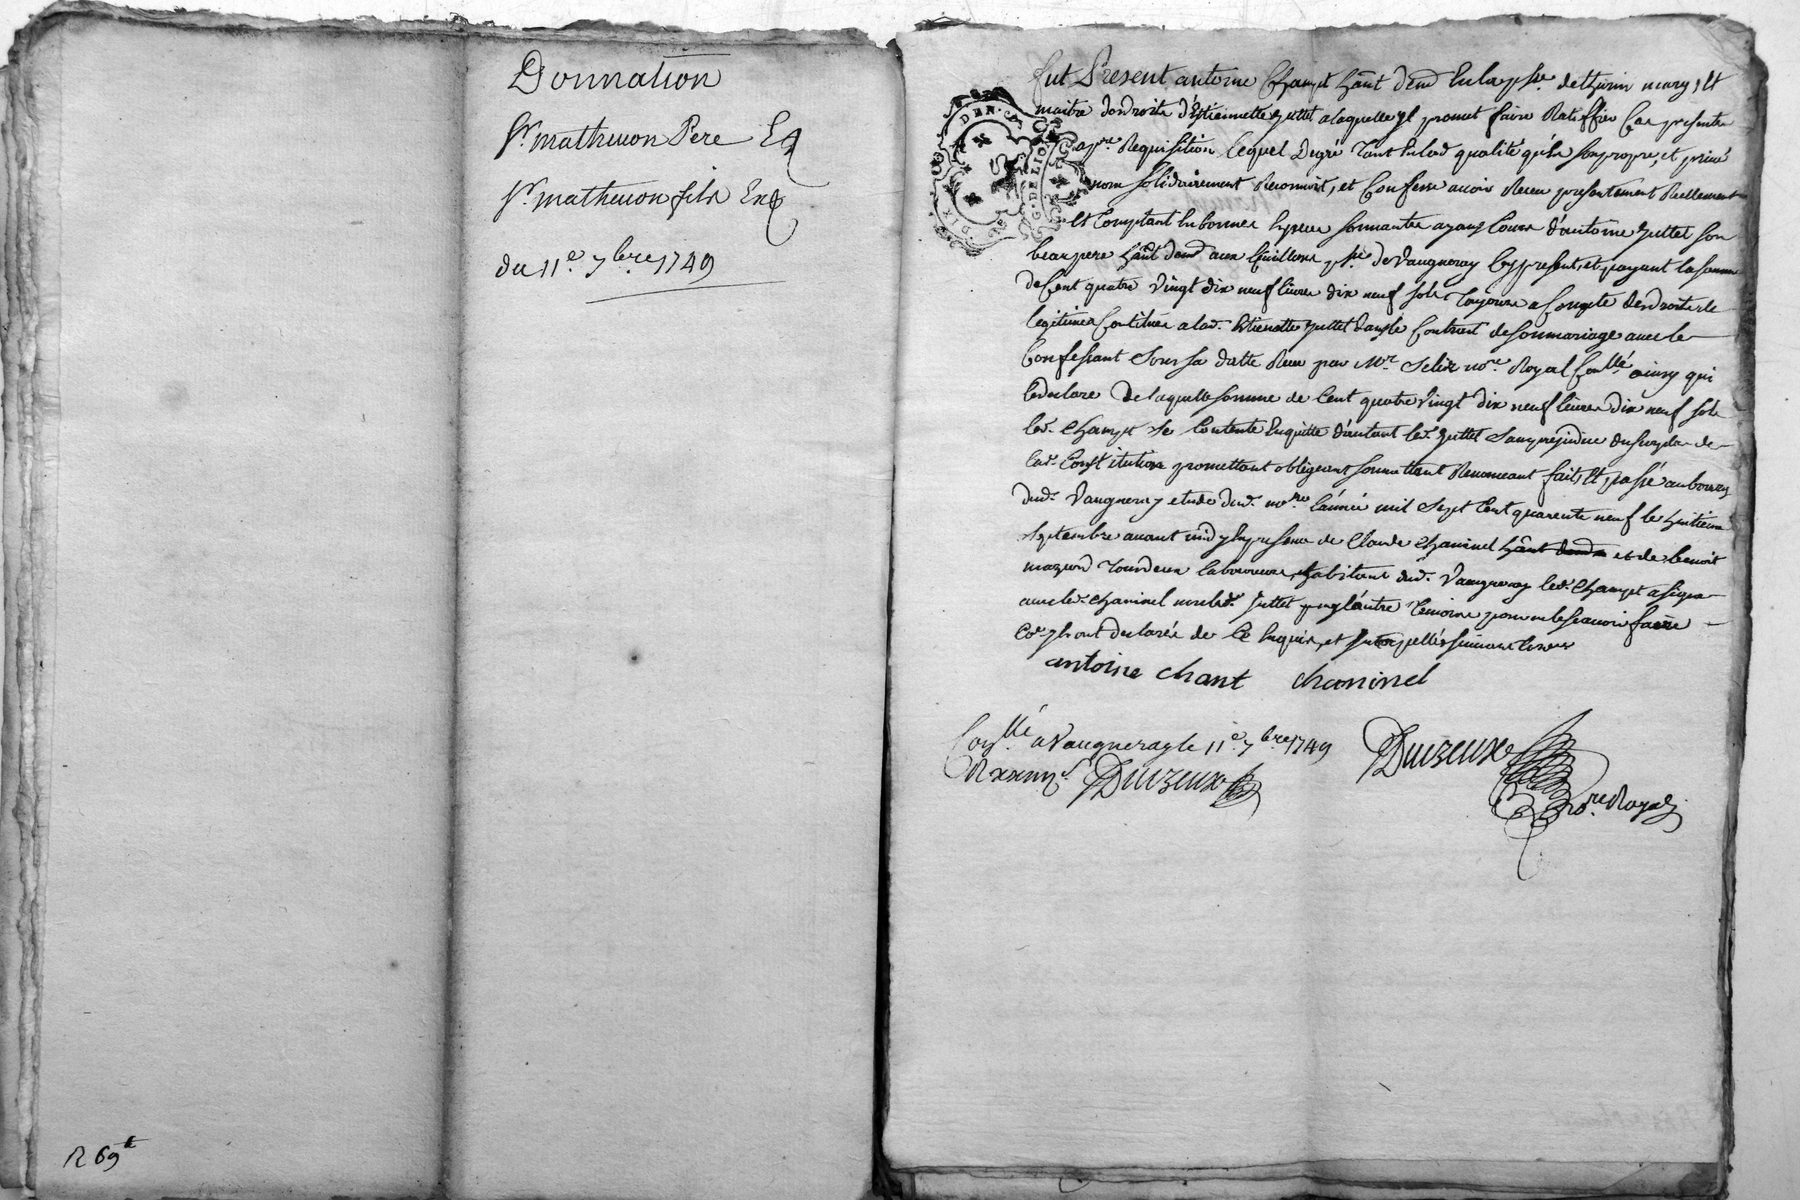 Donnation
Sr. mathieuon Pere Et
Sr. mathieuon fils
du 11e. 7bre 1749
R 69
fut Present antoine Champt hânt en la psse. de thurin mary, et
maitre des droits d'Estiennette juttet a laquelle yl promet faire Ratiffier Ces presentes
apre. Requisition lequel Degré tant enlad qualité qu'en son propre, et privé
nom solidairement Reconnoit, et Confesse avoir Receu presentement Reellement
et Comptant en bonnes Especes sonnantes ayans Cours d'antoine juttet son
beaupere hânt psse de Vaugneray Cy present, et payant la somme
de Cent quatre Vingt dix neuf livres dix neuf sols Toujours a Compte des droits de
legitimes Constitués a lad. Etiennette juttet dans le Contract de son mariage avec le
Confessant Sous sa datte Receu par Mr. Selix nore. Royal Conllé ainsy qui
le declare De laquelle somme de Cent quatre Vingt dix neuf livres dix neuf sols
led. Champt se Contente En quitte d'autant led. juttet sans prejudice du surplus de
lad. Constitution promettant obligeant soumettant Renonceant fait, et passé au bourg
dud. Vaugneray etude dud. nore. l'année mil Sept Cent quarente neuf le huitieme
septembre avant midy En presence de Claude Chaninel hânt et de benoit
mazard Tous deux laboureurs habitants dud. Vaugneray led. Champt a signé
avec led. Chaninel non led. juttet ny l'autre Temoins pour ne le scavoir faire
Co'e. yls ont declarés de Ce Enquis, et Interpellés suivant l'ordce
antoine chant chaninel
Conllé a Vaugneray le 11e 7bre 1749
Duizeux
Duizeux
nore. Royal
DEN. CA
G. DE LION
DIX